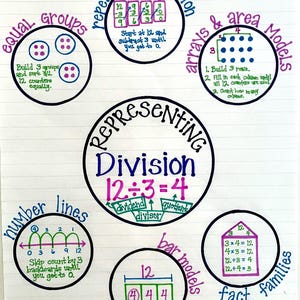 equal groups
Build 3 groups
and sort all
12 counters
equally.
repe
ion
Start at 12 and
subtract 3 until
you get to 0.
arrays & area models
4
3
1. Build 3 rows.
2. Fill in each column until
all 12 counters
3. Count how many
REPRESENTING
Division
12÷3=4
dividend
quotient
divisor
number lines
Skip count by 3
backwards until
you get to 0.
bar models
12
4 4 4
fact families
12
3×4=12
4×3=12
12÷3=4